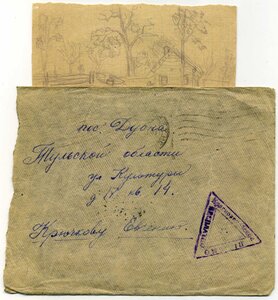 пос. Дубна
Тульской области
ул Культуры
д кв 14.
Крючкову Евгению